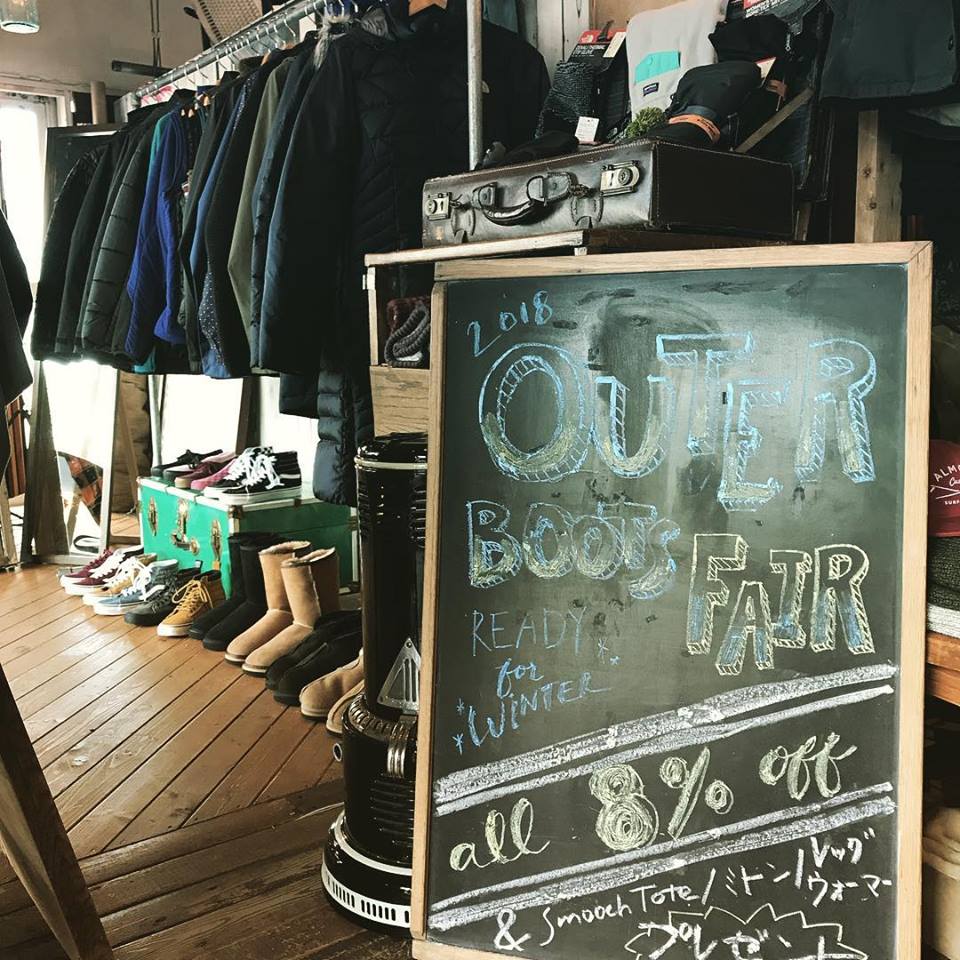 2018
OUTER
BOOTS
FAIR
READY
for
WINTER
all 8% off
& Smooch Tote/ミトン/レッグ
ウォーマー
プレゼント